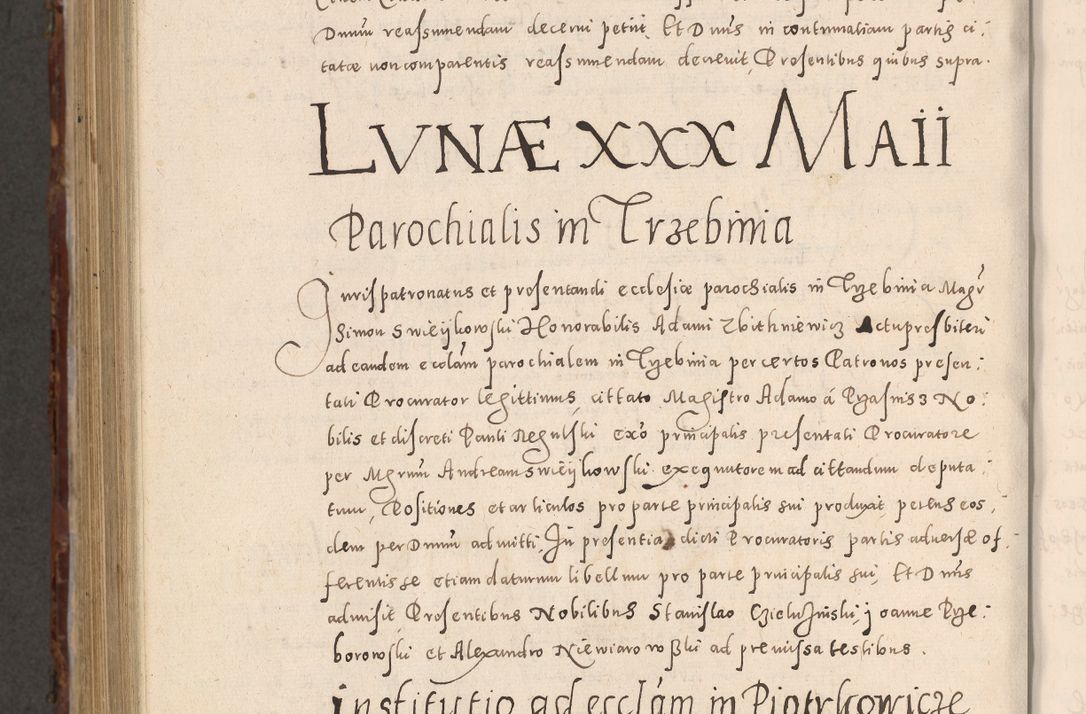 Dnum reassumendam decerni petiit, Et Dnus in contumatiam partis ci:
tatæ non comparentis reassumendam decrevit, Presentibus quibus supra.
LVNÆ XXX MAII
Parochialis in Trzebinia
Jurispatronatus et presentandi ecclesiæ parochialis in Trzebinia Magr
Simon Swieijkowski Honorabilis Adami Zbithniewicz Actu presbiteri
ad eandem ecclam parochialem in Trzebinia per certos Patronos presen:
tati Procurator legittimus, cittato Magistro Adamo á Przasnis3 No:
bilis et discreti Pauli Regulski exo principalis presentati Procuratore
per Mgrum Andream swieijkowski exequutorem ad cittandum deputa:
tum, Positiones et articulos pro parte principalis sui produxit petens eos:
dem per Dnum admitti, In presentia dicti Procuratoris partis adversæ of:
ferentis se etiam daturum libellum pro parte principalis sui, Et Dnus
admisit Presentibus Nobilibus Stanislao joanne Prze:
borowski et Alexandro Niewiarowßki ad premissa testibus.
Institutio ad ecclam in Piotrkowicze